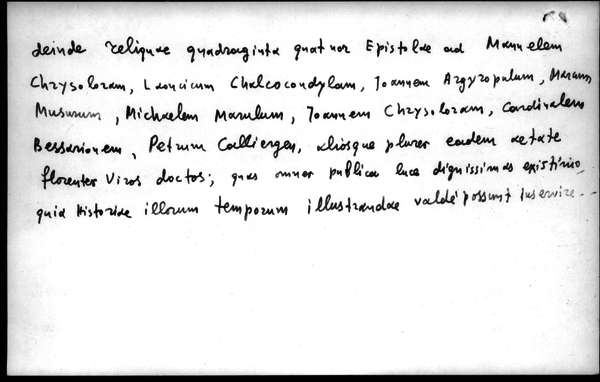 deinde reliquae quadraginta quatuor Epistolae ad Manuelem
Chrysoloram, Laonicum Chalcocondylam, Joannem Argyropulum, Marcum
Musurum, Michaelem Marulum, Joannem Chrysoloram, Cardinalem
Bessarionem, Petrum Calliergen, aliosque plures eadem aetate
florentes Viros doctos; quas omnes publica luce dignissimas existimo,
quia historiae illorum temporum illustrandae valdè possunt inservire.